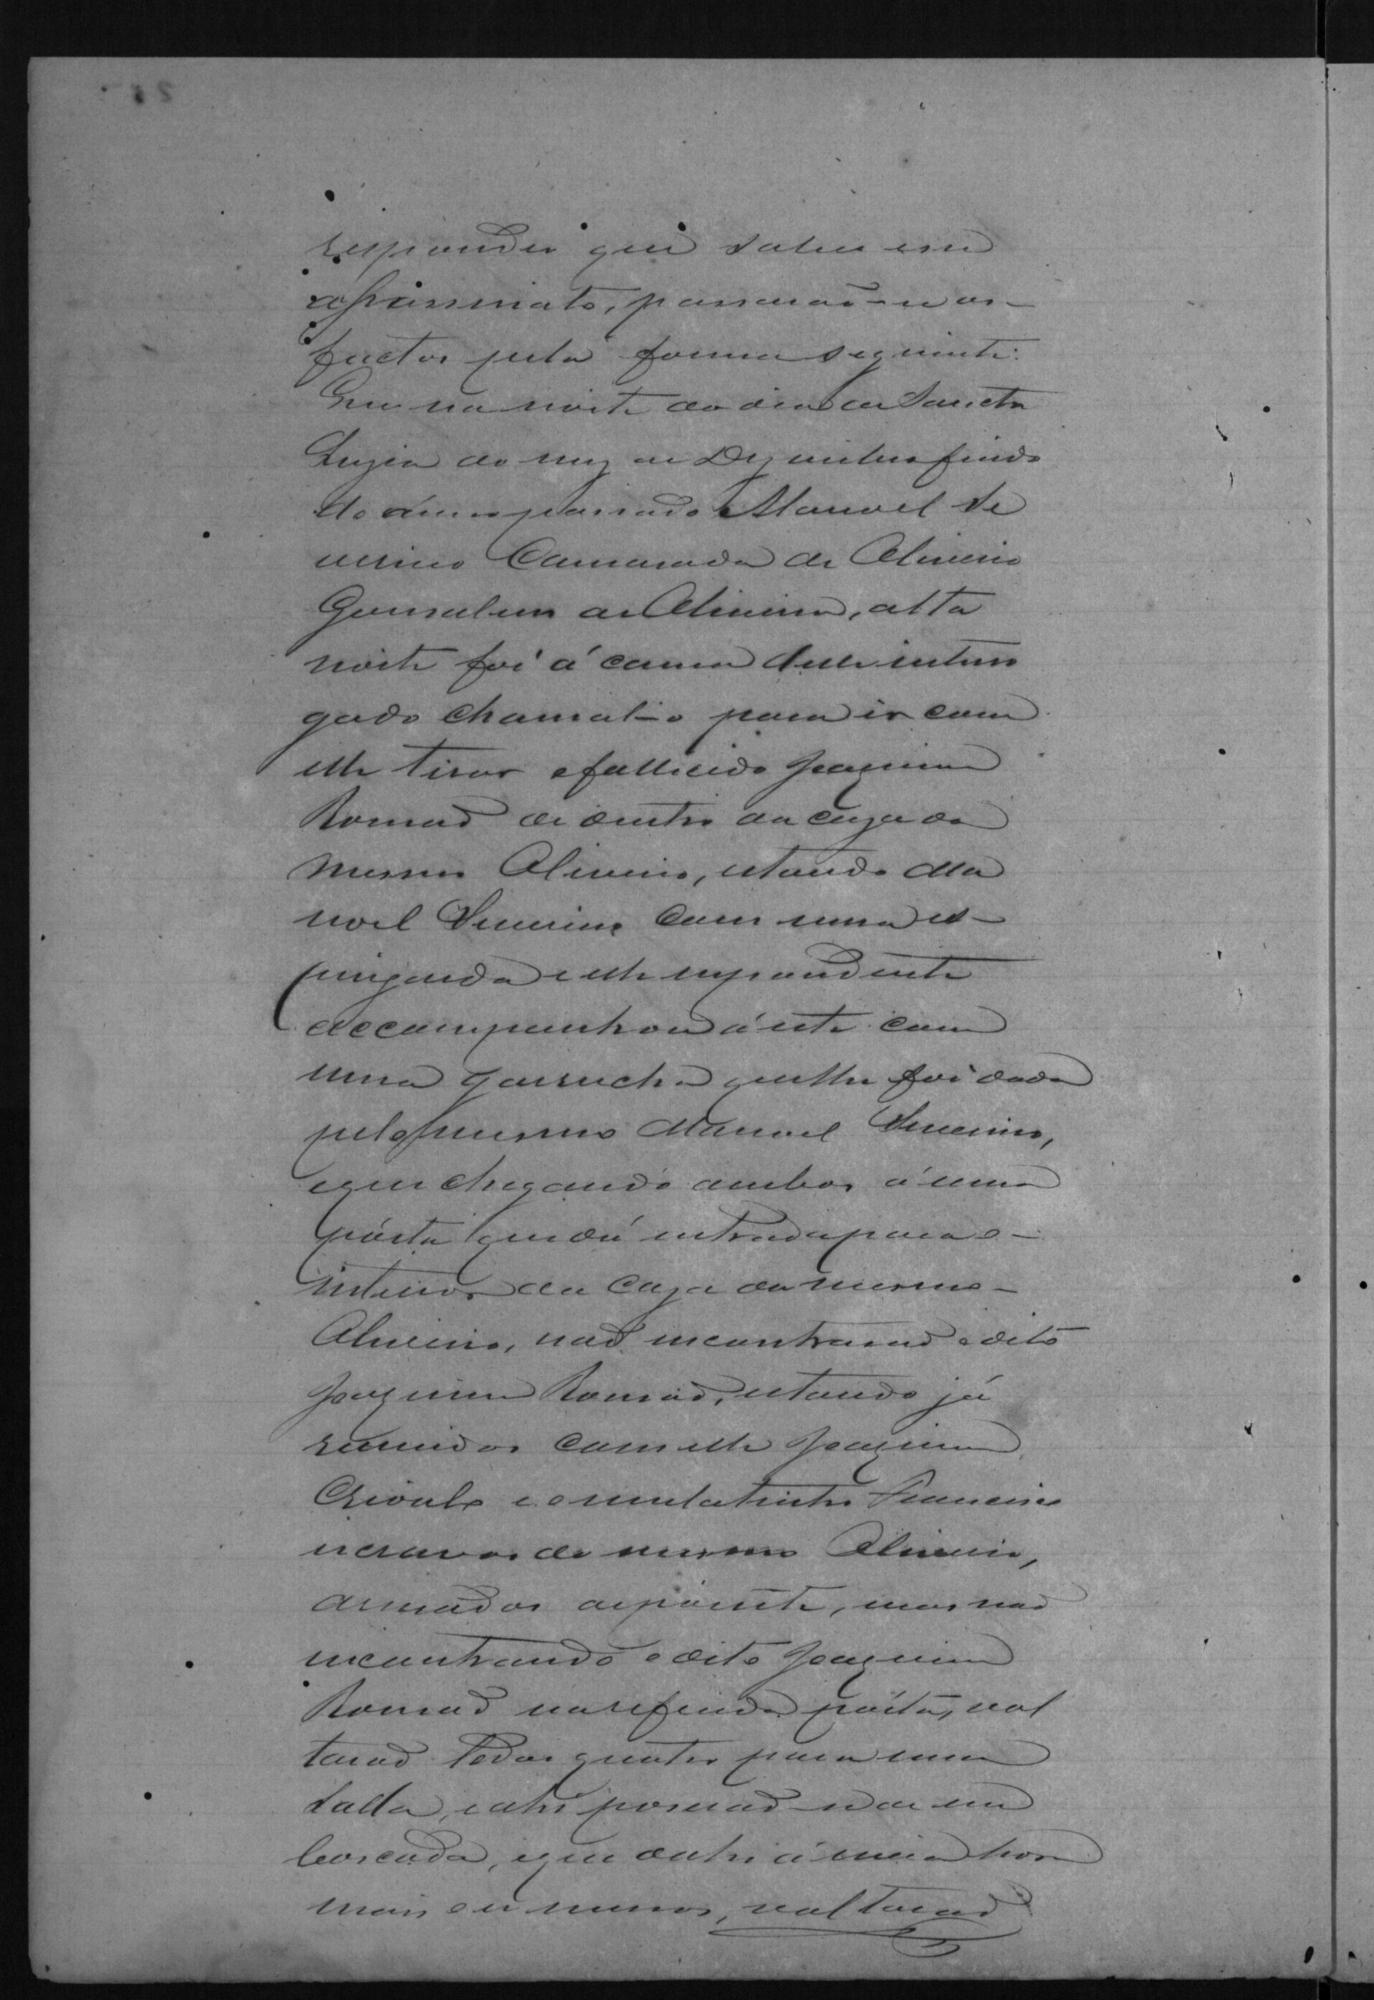 respondeu que sobre esse
assassinato, passarão-se os-
factos pela forma seguinte:
Que na noite do dia de Sancta
Luzia do mez de Dezembro findo
do anno passado Manoel Se
verino Camarada de Oliverio
Gonsalves de Oliveira, alta
noite foi á cama delle interro
gado chamal-o para ir com
elle tirar o fallicido Joaquim
Romão de dentro da caza do
mesmo Oliverio, estando Ma
noel Severino com uma es-
pingarda e elle respondente
accompanhou á este com
uma garrucha que lhe foi dada
pelo mesmo Manoel Severino,
e que chegando ambos á uma
pórta que dá entrada para o-
interior da caza do mesmo-
Oliverio, não encontrarão o dito
Joaquim Romão, estando já
reunidos com elle Joaquim
Crioulo e o mulatinho Francisco
escravos do mesmo Oliverio,
armados de porrête, mas não
encontrando o dito Joaquim
Romão na refirida pórta, vol
tarão todos quatro para uma
salla, e ahi poserão-se de em
boscada, e que dahi á meia hora
mais ou menos, voltarão